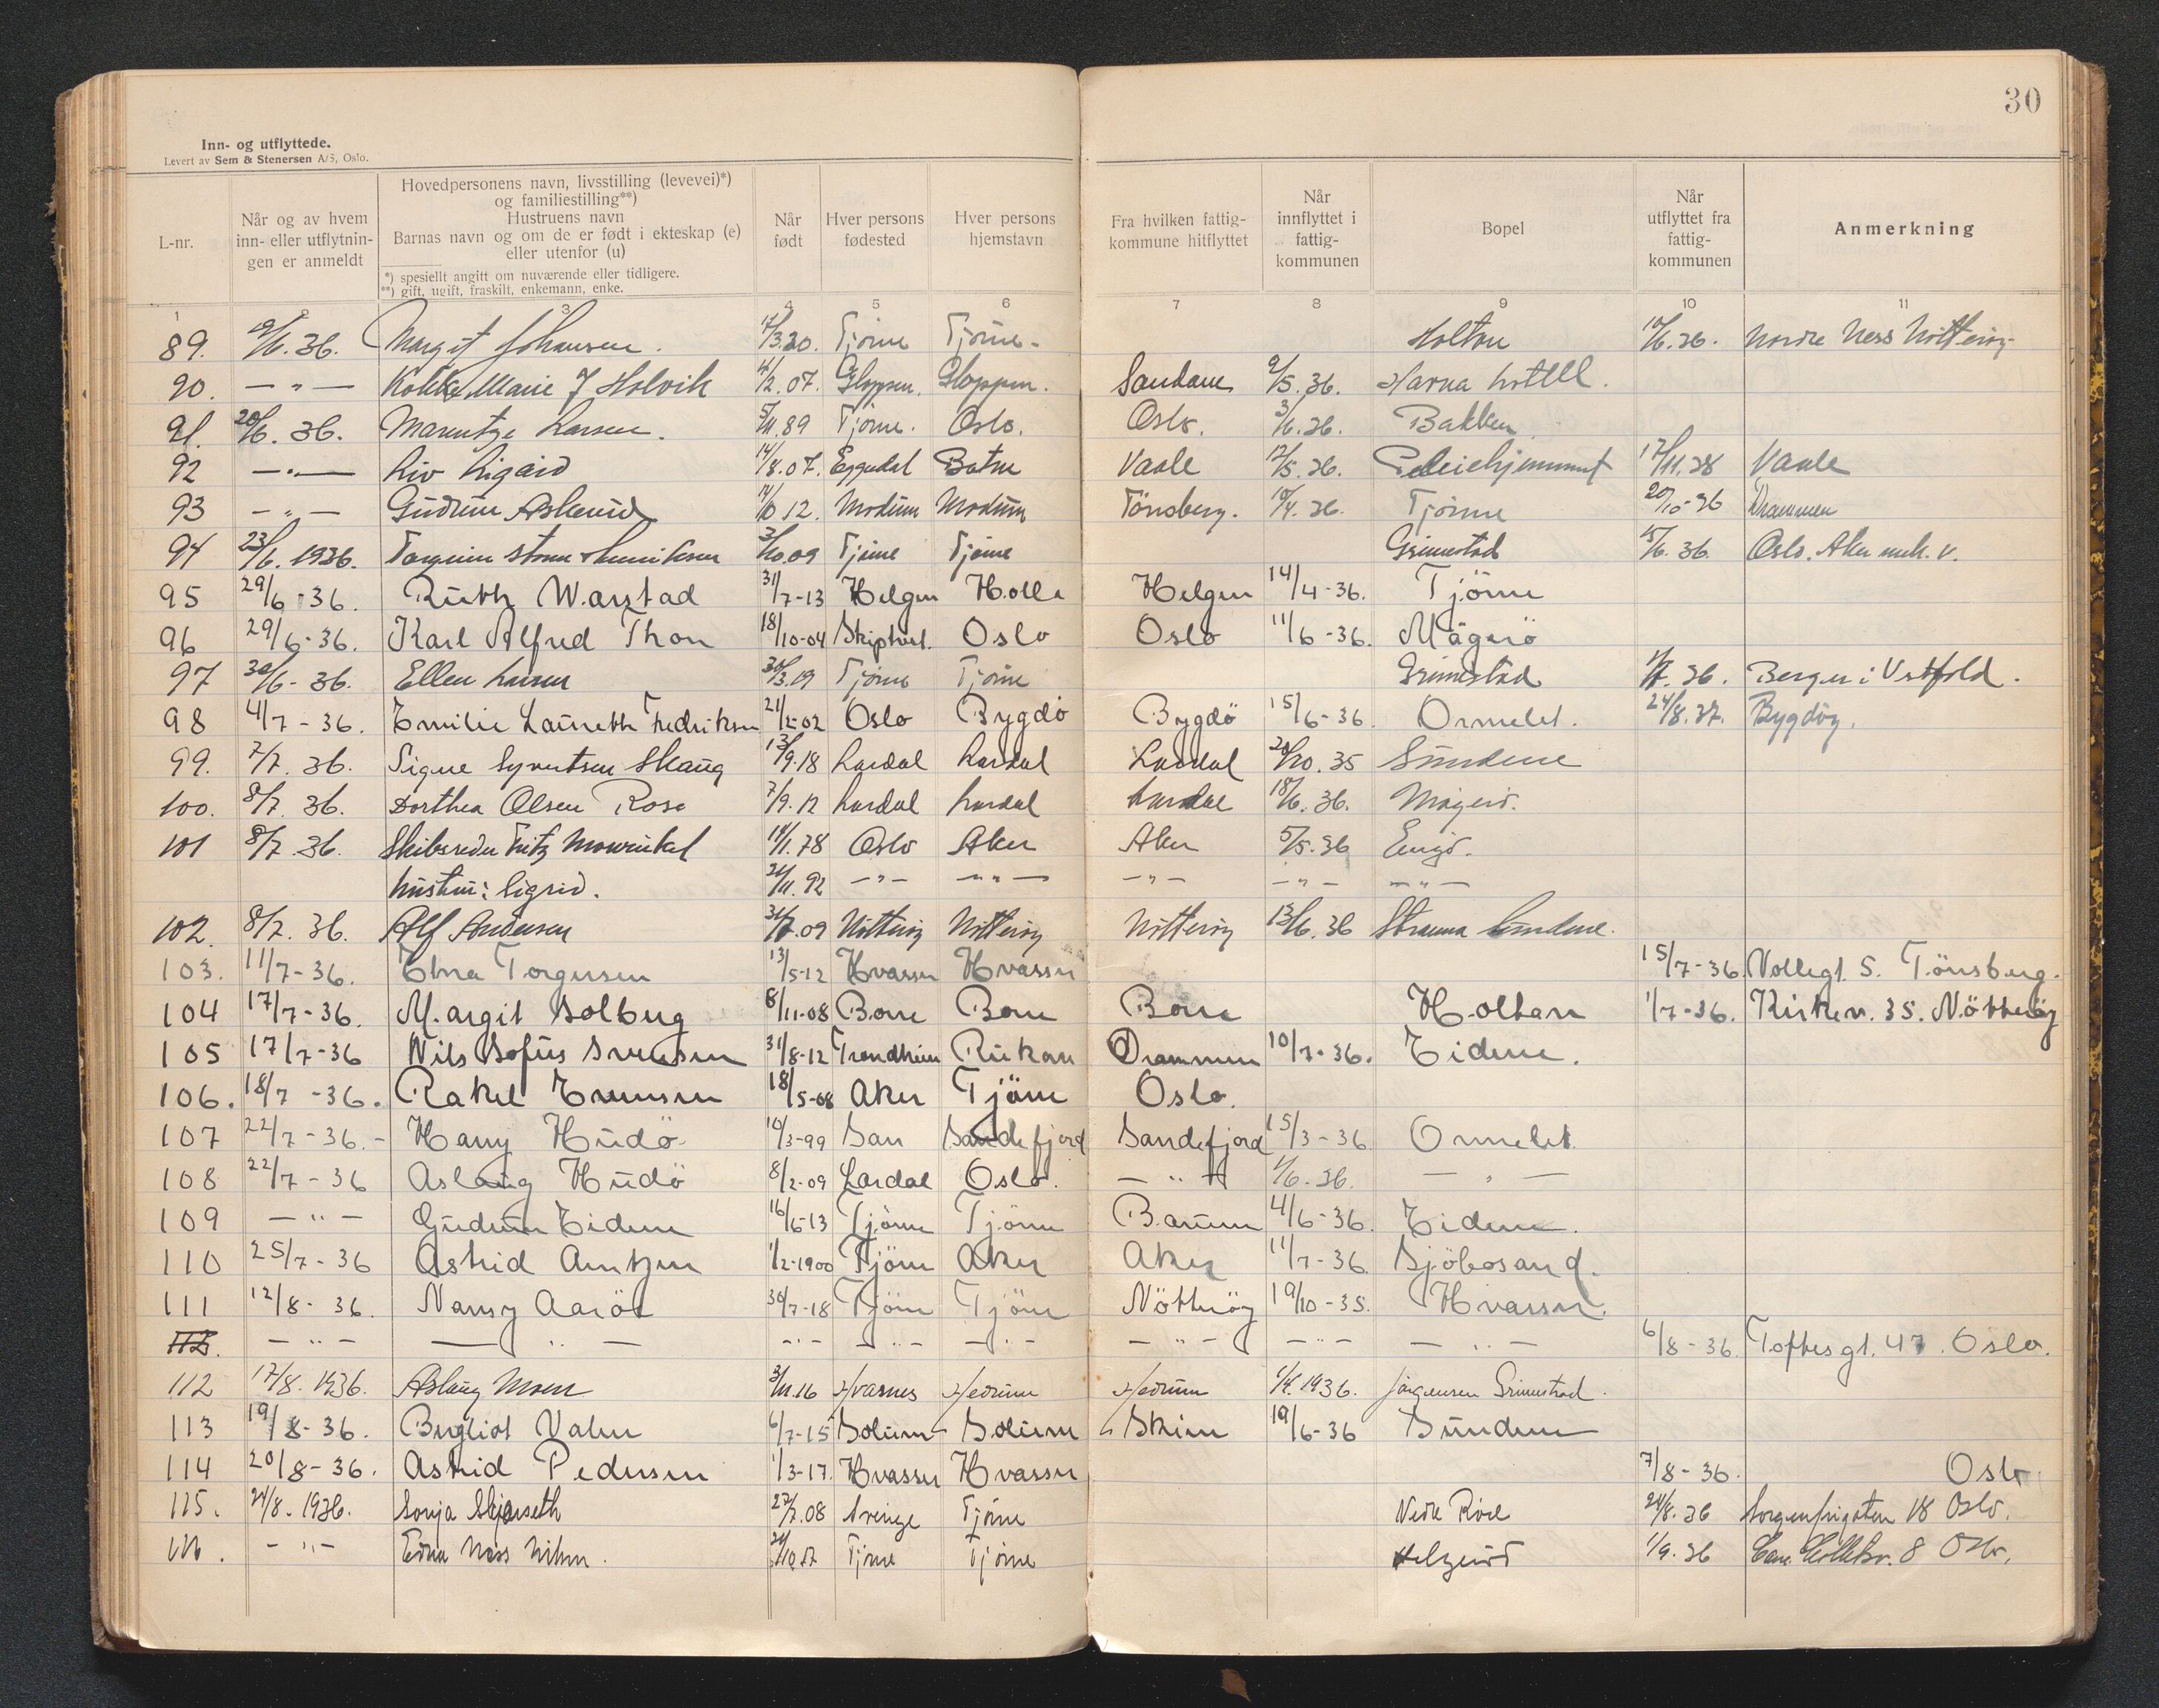 30
Inn- og utflyttede.
Levert av Sem & Stenersen A/S, Oslo.
L-nr.
Når og av hvem inn- eller utflytningen er anmeldt
Hovedpersonens navn, livsstilling (levevei)*) og familiestilling**)
Hustruens navn
Barnas navn og om de er født i ekteskap (e) eller utenfor (u)
*) spesiellt angitt om nuværende eller tidligere.
**) gift, ugift, fraskilt, enkemann, enke.
Når født
Hver persons fødested
Hver persons hjemstavn
Fra hvilken fattigkommune hitflyttet
Når innflyttet i fattigkommunen
Bopel
Når utflyttet fra fattigkommunen
Anmerkning
1 2 3 4 5 6 7 8 9 10 11
89. 9/6. 36. Margit Johansen. 17/3.20. Tjöme Tjöme Holtan 10/6.36. Nordre Ness Nötteröy
90. — " — Marie J Holvik 4/2.07. Gloppen. Gloppen. Sandane 9/5.36. Havna hotell.
91. 20/6. 36. Marentze Larsen. 5/11.89 Tjöme. Oslo. Oslo. 3/6.36. Bakken
92 — " — Liv Ligård 14/8.07. Eggedal Botne Vaale 12/5.36. Pleiehjemmet 17/11.38 Vaale
93 — " — Gudrun Askerud 14/10 12. Modum Modum Tönsberg. 10/4.36. Tjöme 20/10-36 Drammen
94 23/6. 1936. Storm Henriksen 3/10.09 Tjöme Tjöme Grimestad 15/6.36. Oslo. Aker
95 29/6-36. Ruth Warstad 31/7-13 Helgen Holla Helgen 14/4-36. Tjöme
96 29/6-36. Karl Alfred Thon 18/10-04 Skiptvet. Oslo Oslo 11/6-36. Mågerö
97 30/6-36. Ellen Larsen 30/3.19 Tjöme Tjöme Grimestad 1/7.36. Berger i Vestfold.
98 4/7-36. Emilie Laureth Fredriksen 21/2-02 Oslo Bygdö Bygdö 15/6-36. Ormelet. 24/8.37. Bygdöy.
99. 7/7. 36. Signe Syvertsen Skaug 13/9.18 Lardal Lardal Lardal 20/10.35 Sundene
100. 8/7. 36. Dorthea Olsen Rose 7/9.12 Lardal Lardal Lardal 18/6.36. Mågerö.
101 8/7. 36. Skibsreder Fritz Mowinkel 14/1.78 Oslo Aker Aker 5/5.36
hustru: Sigrid. 24/11.92 — " — — " — — " — — " — — " —
102. 8/7. 36. Alf Andersen 31/7.09 Nötteröy Nötteröy Nötteröy 13/6.36 Sundene.
103. 11/7-36. Edna Torgersen 13/5-12 Hvasser Hvasser 15/7-36. Vollegt. 5. Tönsberg.
104 17/7-36. Margit Solberg 8/11-08 Borre Borre Borre Holtan 1/7-36. Kirkev. 35. Nötteröy
105 17/7-36 Nils Sofus Svensen 31/8-12 Trondheim Rukan Drammen 10/7-36. Eidene.
106. 18/7-36. Rakel Evensen 18/5-08 Aker Tjöme Oslo.
107 22/7-36.- Harry Hudö 10/3-99 San Sandefjord Sandefjord 15/3-36 Ormelet
108 22/7-36 Aslaug Hudö 8/2-09 Lardal Oslo. — " — 1/6.36. — " —
109 — " — Gudrun Eidene 16/6-13 Tjöme Tjöme Bærum 4/6-36. Eidene.
110 25/7-36 Astrid Arntzen 1/2-1900 Tjöme Aker Aker 11/7-36 Sjöbosand.
111 12/8-36. Nansy Aaröe 30/7-18 Tjöme Tjöme Nötteröy 19/10-35. Hvasser.
112. — " — — " — — " — — " — — " — — " — — " — — " — 6/8-36. Toftesgt. 47. Oslo.
112 17/8. 1936. Aslaug Moen 3/11.16 Hvarnes Hedrum Hedrum 1/4.1936. Jörgensen Grimestad.
113 19/8-36. Bergliot Valen 6/7-15 Solum Solum Skien 19/6-36 Sundene
114 20/8-36. Astrid Pedersen 1/3-17. Hvasser Hvasser 7/8-36. Oslo
115. 24/8. 1936. Sonja Skjærseth 27/7.08 Tjöme Nedre Röed 24/8.36 Sorgenfrigaten 18 Oslo.
116. — " — Edna Næss Nilsen. 24/10.17 Tjöme Tjöme Helgeröd 1/9.36 8 Oslo.